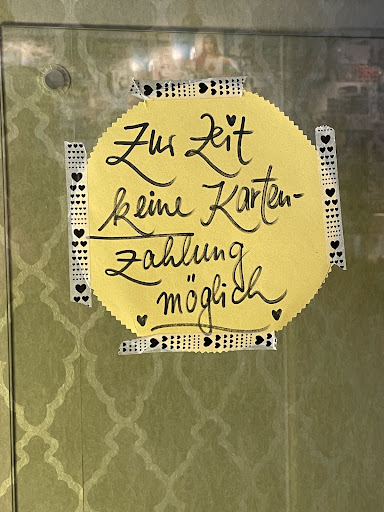 Zur Zeit
keine Karten-
zahlung
möglich